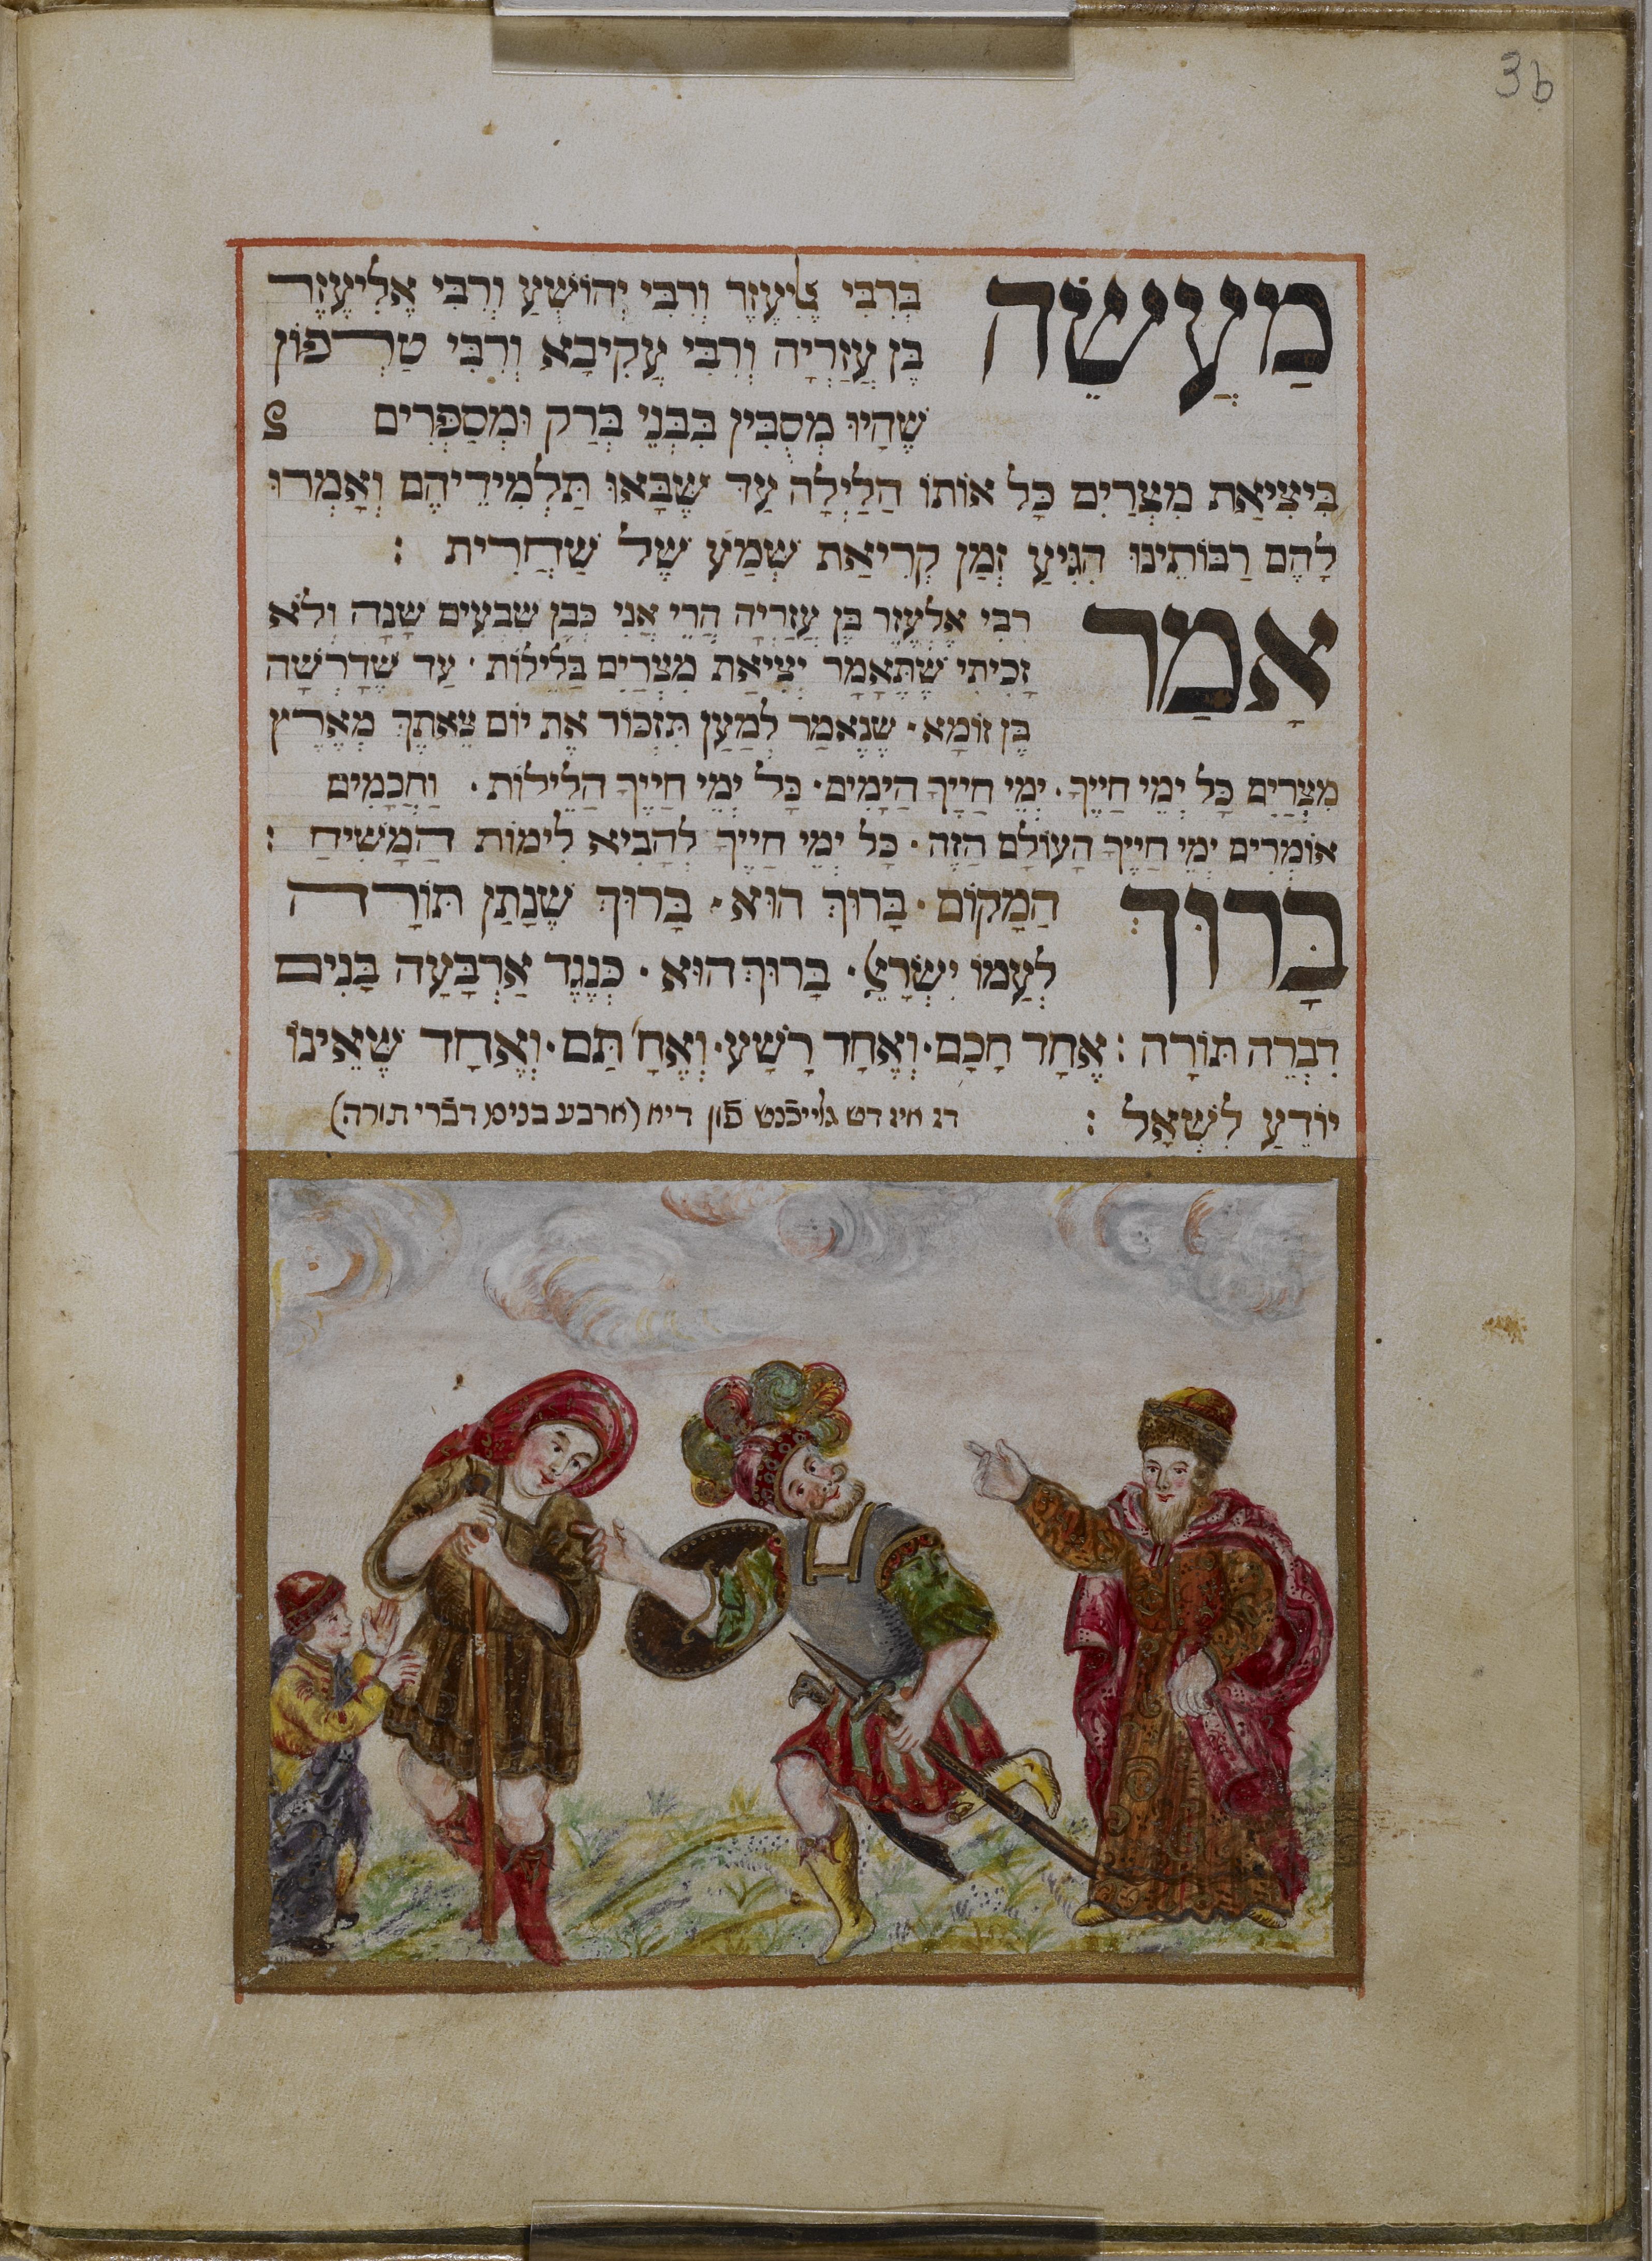 3b
מַעֲשֵׂה בְּרִבִּי אֱלִיעֶזֶר וְרִבִּי יְהוֹשֻׁעַ וְרִבִּי אֶלִיעֶזֶר
בֶּן עֲזַרְיָה וְרִבִּי עֲקִיבָא וְרִבִּי טַרְפוֹן
שֶׁהָיוּ מְסֻבִּין בִּבְנֵי בְּרַק וּמְסַפְּרִים
בִּיצִיאַת מִצְרַיִם כָּל אוֹתוֹ הַלַּיְלָה עַד שֶׁבָּאוּ תַּלְמִידֵיהֶם וְאָמְרוּ
לָהֶם רַבּוֹתֵינוּ הִגִּיעַ זְמַן קְרִיאַת שְׁמַע שֶׁל שַׁחֲרִית :
אָמַר רִבִּי אֶלְעֶזֶר בֶּן עֲזַרְיָה הֲרֵי אֲנִי כְּבֶן שִׁבְעִים שָׁנָה וְלֹא
זָכִיתִי שֶׁתֶּאָמַר יְצִיאַת מִצְרַיִם בַּלֵּילוֹת · עַד שֶׁדְּרָשָׁהּ
בֶּן זוֹמָא · שֶׁנֶּאֱמַר לְמַעַן תִּזְכּוֹר אֶת יוֹם צֵאתְךָ מֵאֶרֶץ
מִצְרַיִם כָּל יְמֵי חַיֶּיךָ · יְמֵי חַיֶּיךָ הַיָּמִים · כָּל יְמֵי חַיֶּיךָ הַלֵּילוֹת · וַחֲכָמִים
אוֹמְרִים יְמֵי חַיֶּיךָ הָעוֹלָם הַזֶּה · כָּל יְמֵי חַיֶּיךָ לְהָבִיא לִימוֹת הַמָּשִׁיחַ :
בָּרוּךְ הַמָּקוֹם · בָּרוּךְ הוּא · בָּרוּךְ שֶׁנָּתַן תּוֹרָה
לְעַמּוֹ יִשְׂרָאֵל · בָּרוּךְ הוּא · כְּנֶגֶד אַרְבָּעָה בָּנִים
דִּבְּרָה תּוֹרָה : אֶחָד חָכָם · וְאֶחָד רָשָׁע · וְאֶחָ' תָּם · וְאֶחָד שֶׁאֵינוֹ
יוֹדֵעַ לִשְׁאָל : דז איז דש גלייכֿנט פֿון דיא (ארבע בנים דברי תורה)